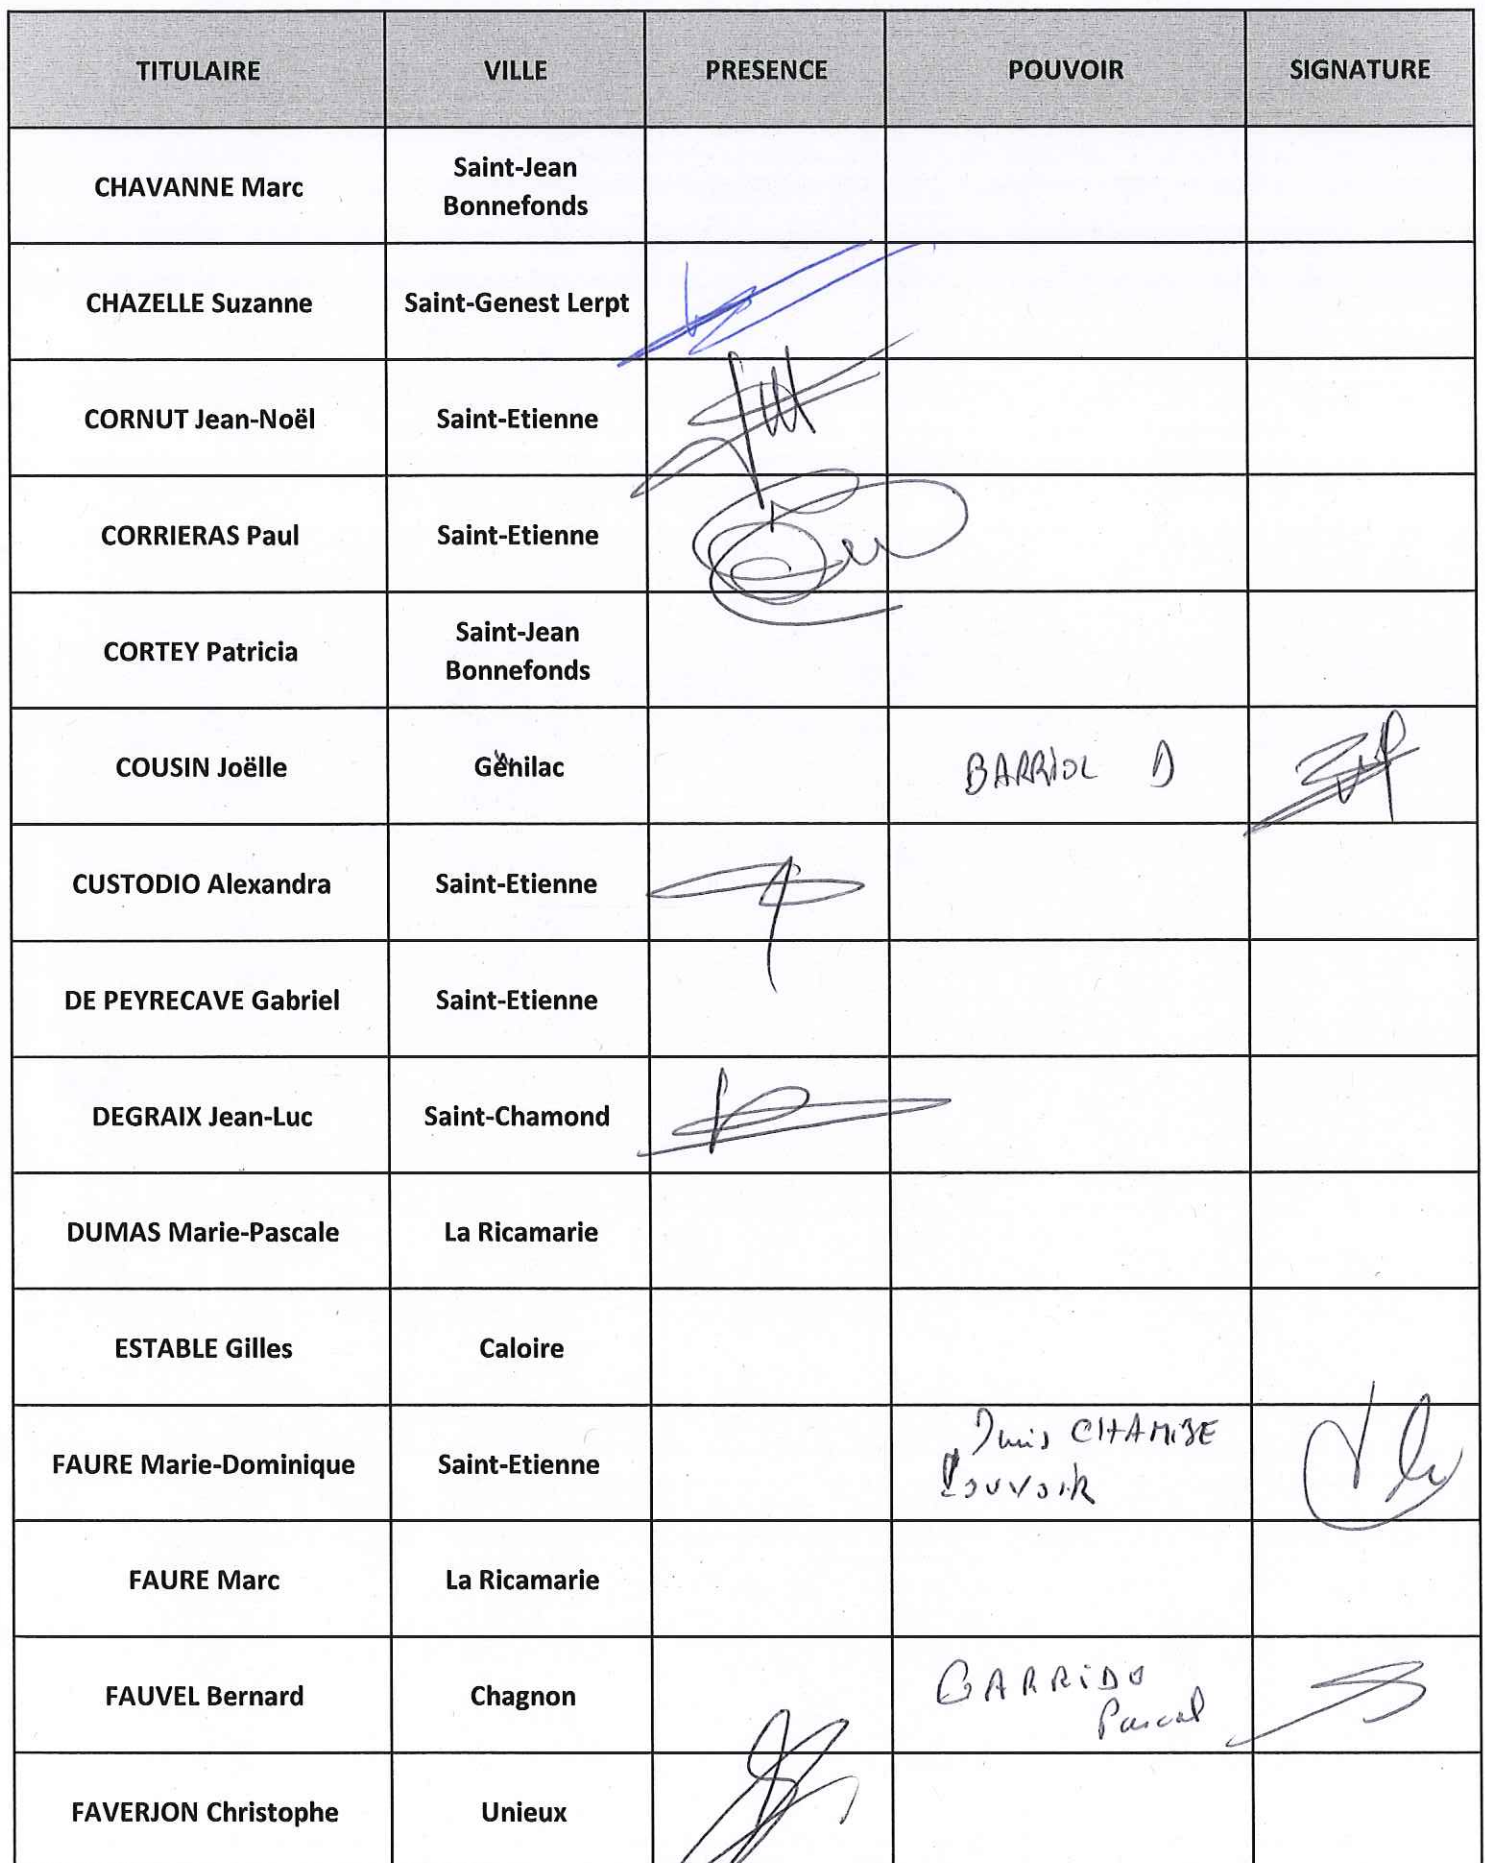 TITULAIRE VILLE PRESENCE POUVOIR SIGNATURE
CHAVANNE Marc Saint-Jean
Bonnefonds
CHAZELLE Suzanne Saint-Genest Lerpt
CORNUT Jean-Noël Saint-Etienne
CORRIERAS Paul Saint-Etienne
CORTEY Patricia Saint-Jean
Bonnefonds
COUSIN Joëlle Génilac BARRIOL D
CUSTODIO Alexandra Saint-Etienne
DE PEYRECAVE Gabriel Saint-Etienne
DEGRAIX Jean-Luc Saint-Chamond
DUMAS Marie-Pascale La Ricamarie
ESTABLE Gilles Caloire
FAURE Marie-Dominique Saint-Etienne CHAMBE
Pouvoir
FAURE Marc La Ricamarie
FAUVEL Bernard Chagnon GARRIDO
Pascal
FAVERJON Christophe Unieux